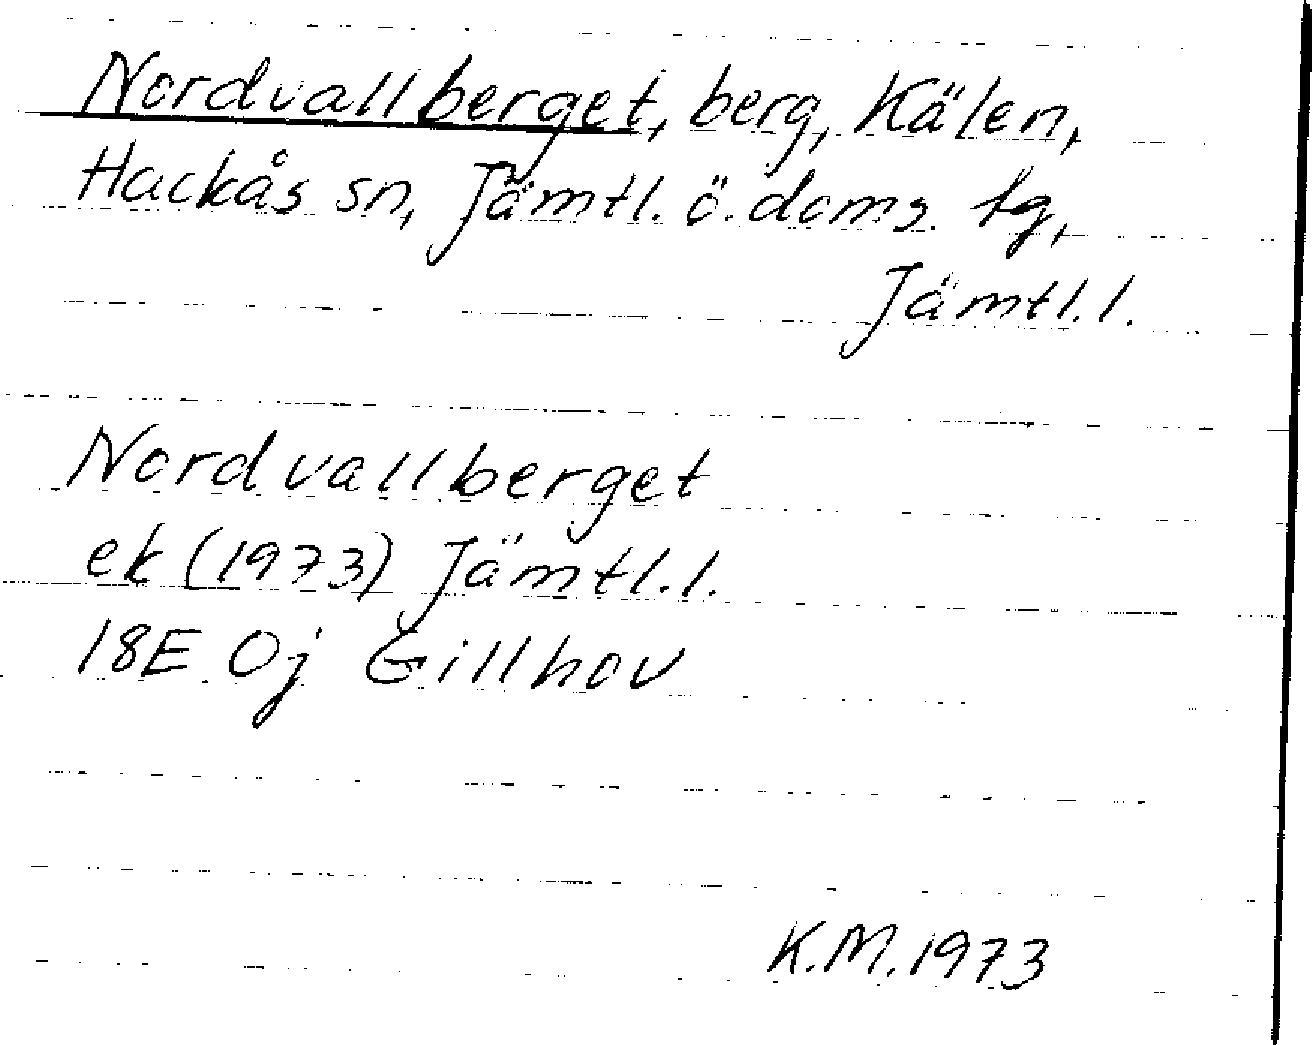 Nordvallberget, berg, Kälen,
Hackås sn, Jämtl. ö. doms. tg,
Jämtl. l.
Nordvallberget
ek (1973) Jämtl. l.
18E 0j Gillhov
K.M. 1973